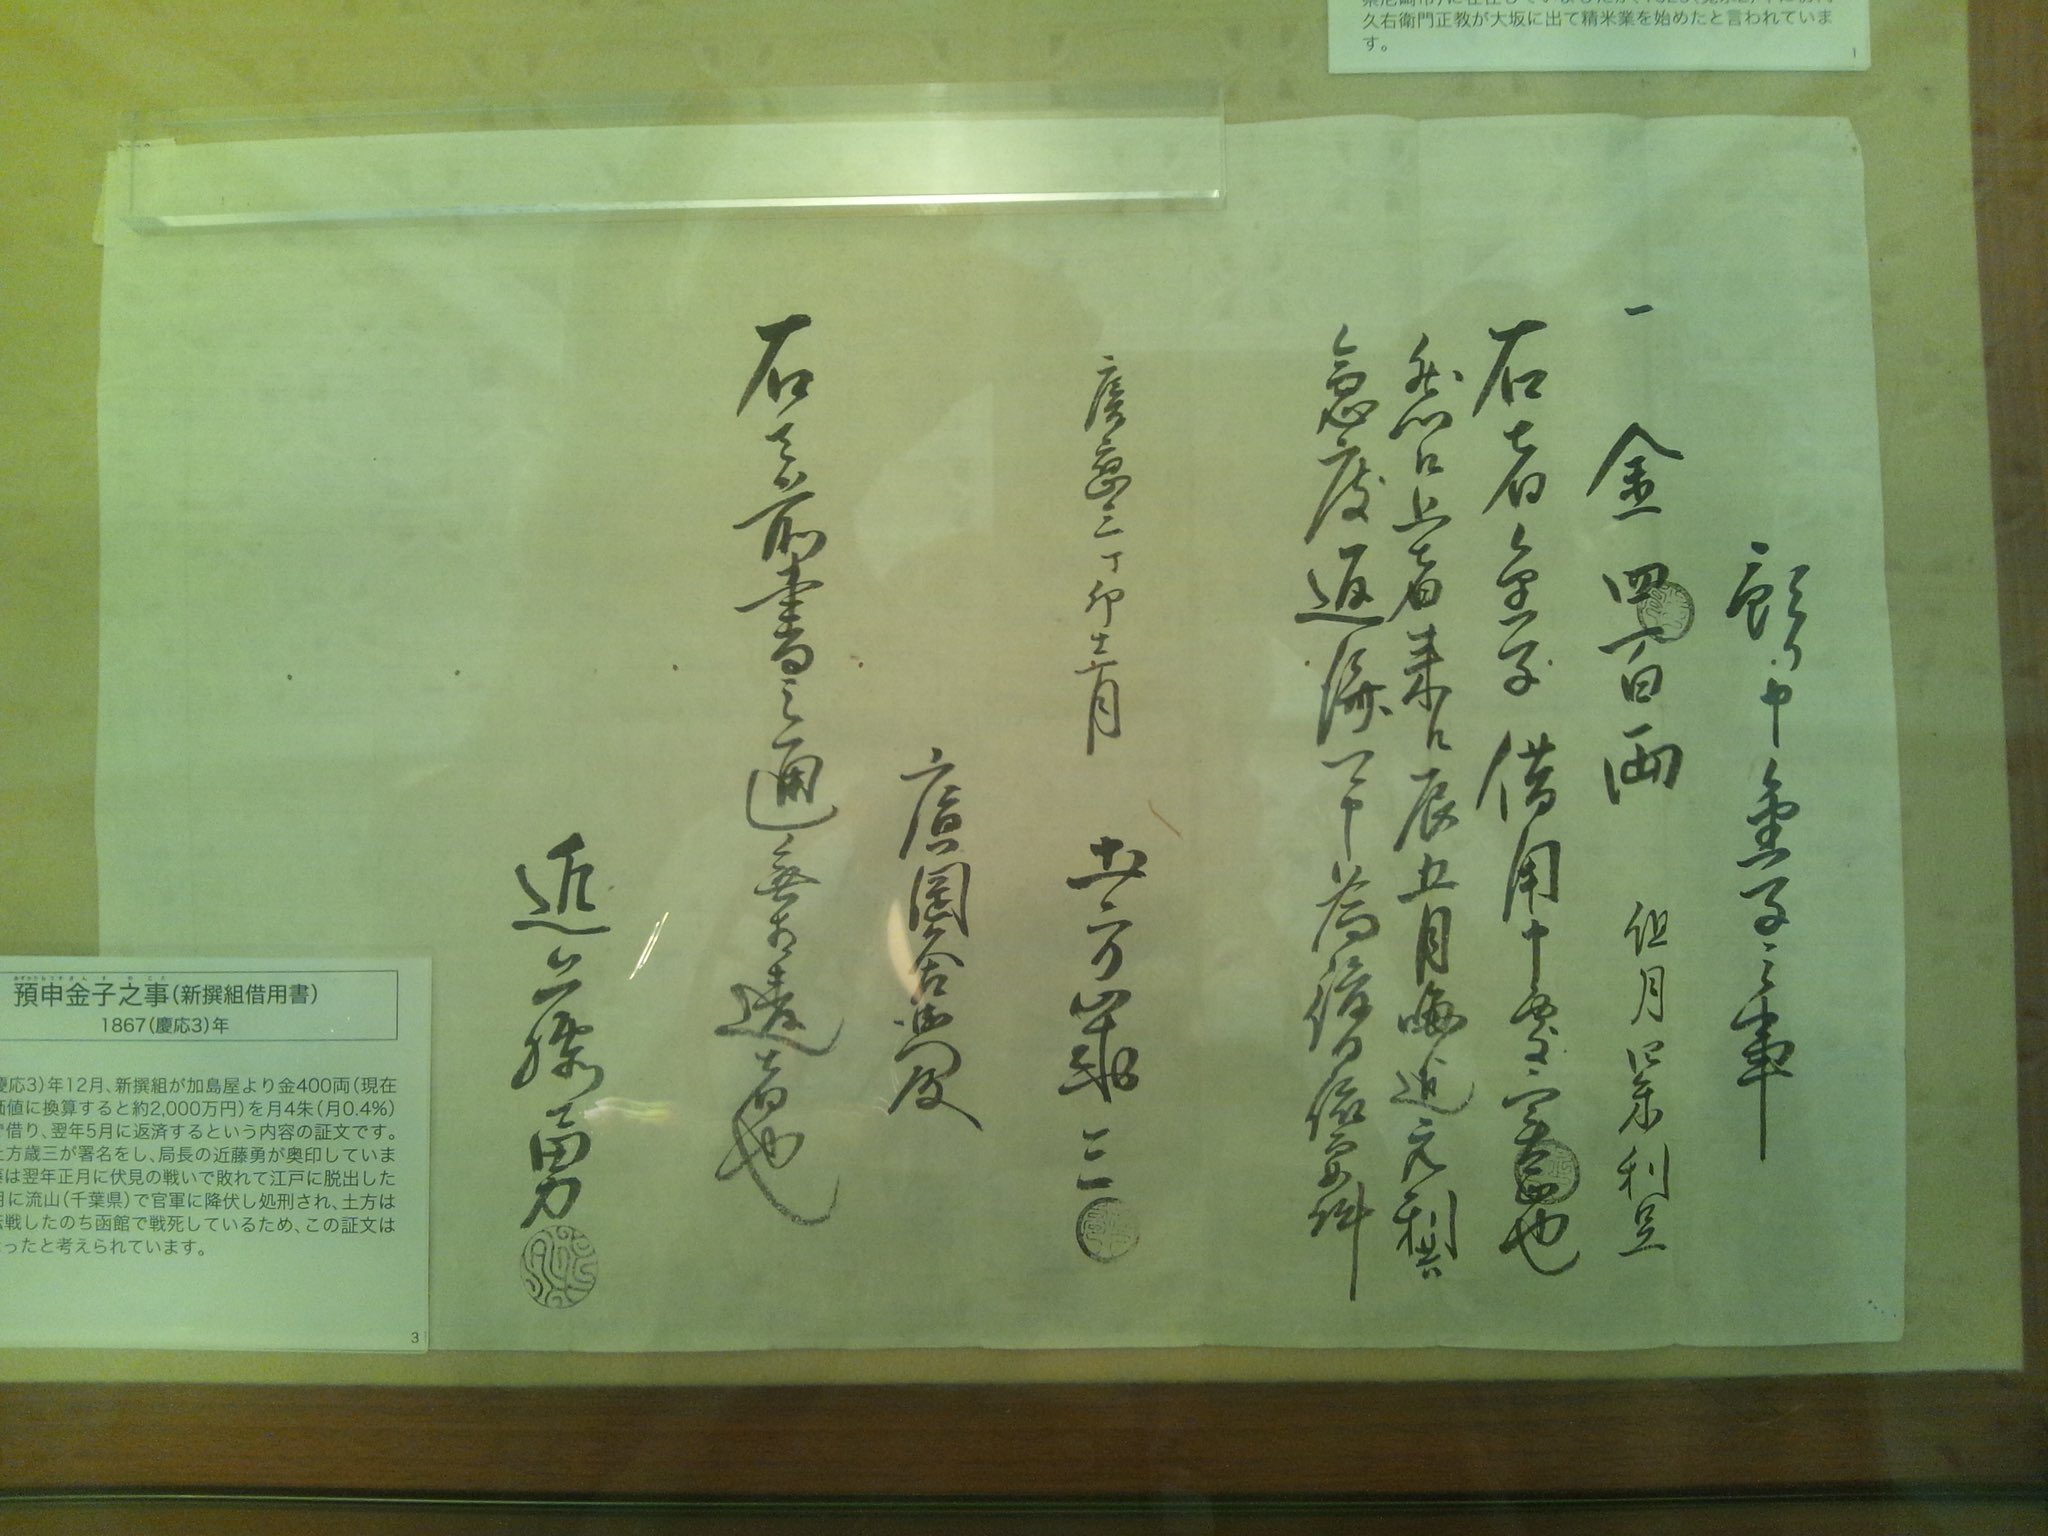 県尼崎市)に在住していましたが、1625(寛永2)年に初代
久右衛門正教が大坂に出て精米業を始めたと言われていま
す。
1
預り申金子之事
一 金四百両 但月四朱利足
右者金子借用申處実正也
然ル上者来ル辰五月晦迄元利共
急度返済可申為後證依如件
慶應三丁卯十二月
土方歳三
廣岡久右衛門殿
右之前書之通無相違者也
近藤勇
あずかりもうすきんすのこと
預申金子之事(新撰組借用書)
1867(慶応3)年
慶応3)年12月、新撰組が加島屋より金400両(現在
価値に換算すると約2,000万円)を月4朱(月0.4%)
で借り、翌年5月に返済するという内容の証文です。
土方歳三が署名をし、局長の近藤勇が奥印していま
は翌年正月に伏見の戦いで敗れて江戸に脱出した
月に流山(千葉県)で官軍に降伏し処刑され、土方は
転戦したのち函館で戦死しているため、この証文は
なったと考えられています。
3